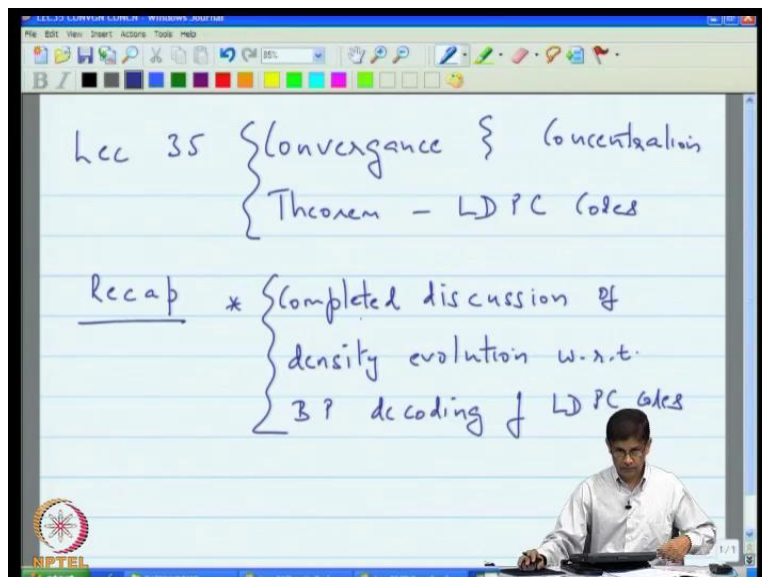 LEC35 CONVGN CONCN - Windows Journal
File Edit View Insert Actions Tools Help
85%
B I
Lec 35 Convergance & Concentration
Theorem - LDPC Codes
Recap * Completed discussion of
density evolution w.r.t.
BP decoding of LDPC codes
1/1
NPTEL